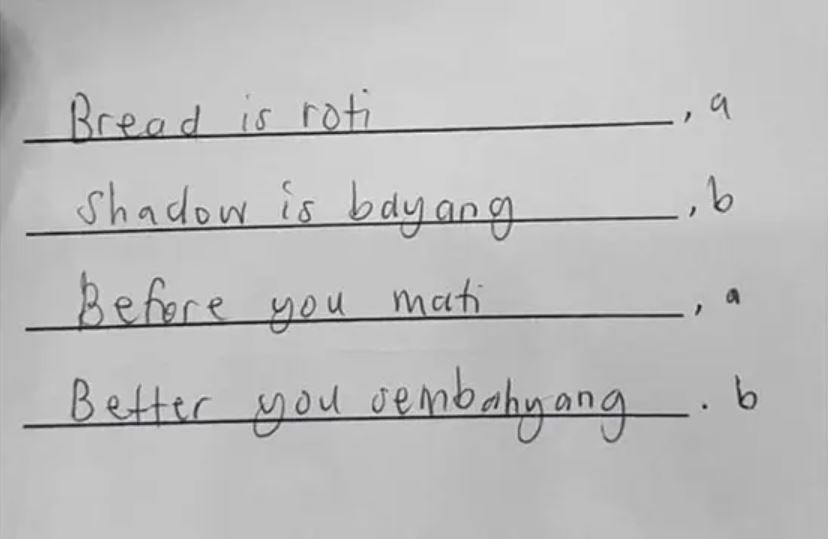 Bread is roti, a
shadow is bayang, b
Before you mati, a
Better you sembahyang. b